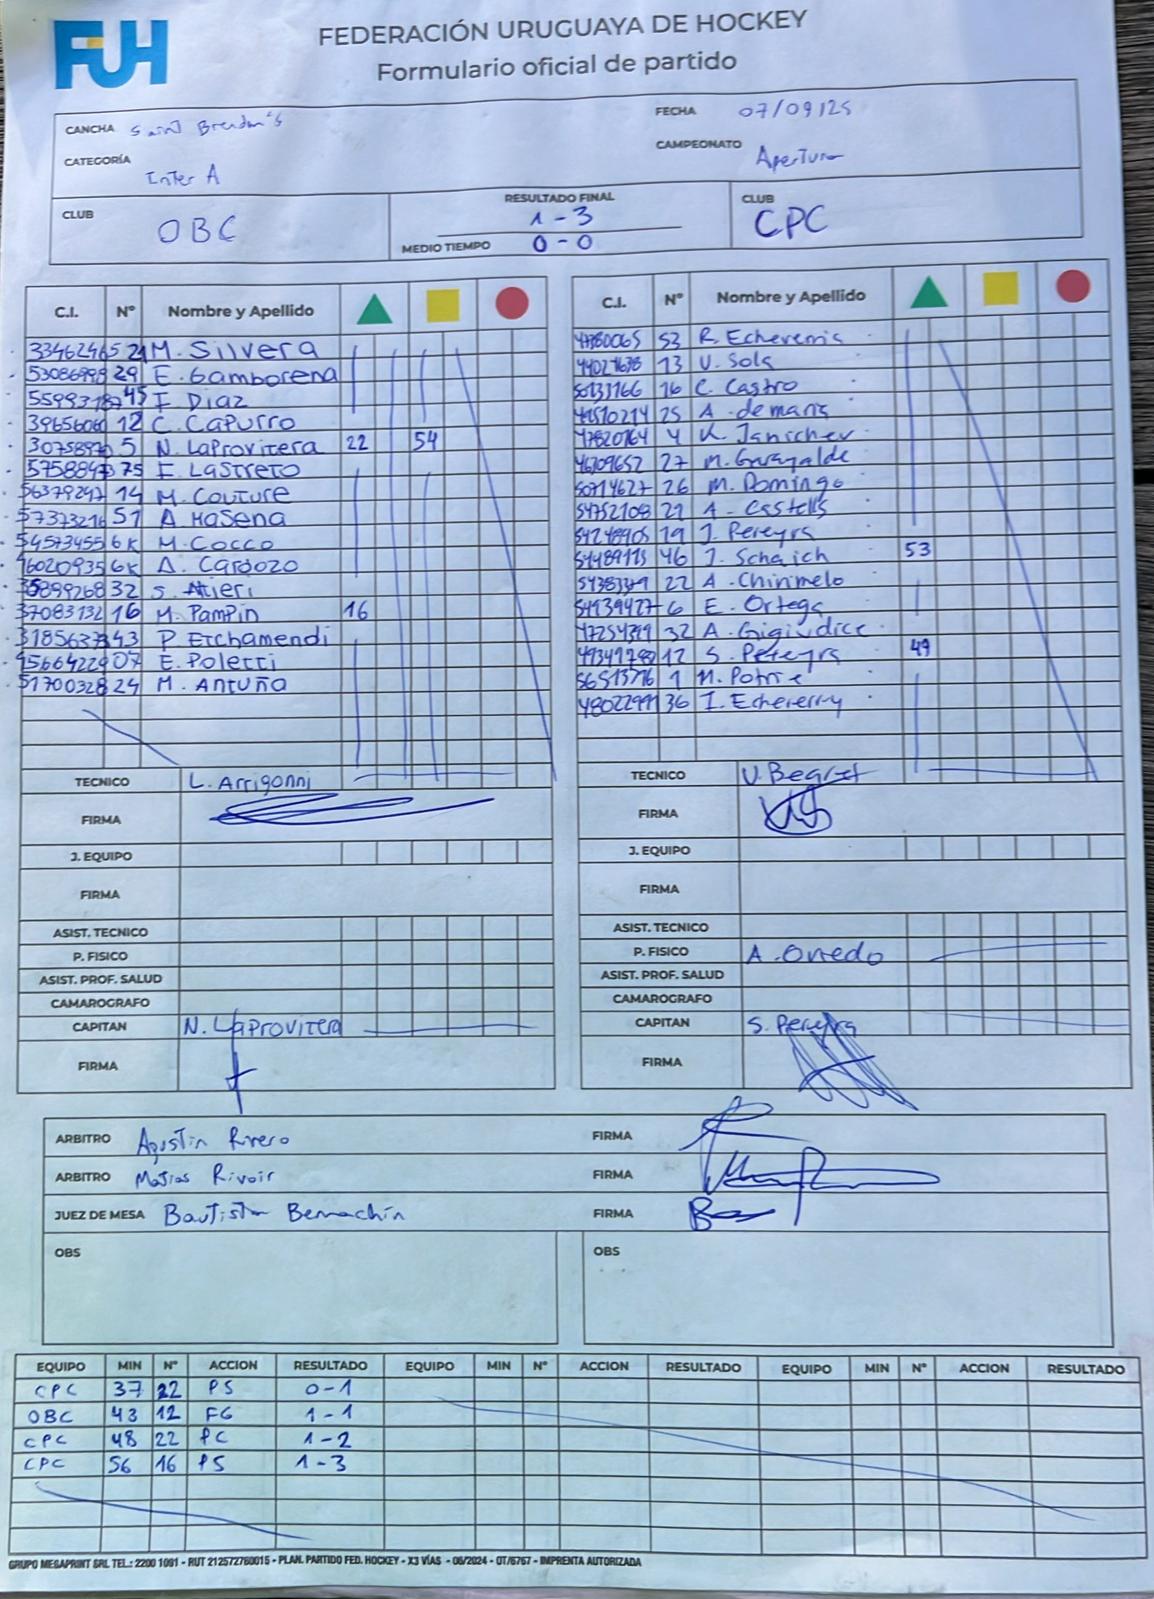 FUH
FEDERACIÓN URUGUAYA DE HOCKEY
Formulario oficial de partido
CANCHA Saint Brendan's
FECHA 07/09/25
CATEGORÍA Inter A
CAMPEONATO Apertura
CLUB OBC
RESULTADO FINAL 1-3
MEDIO TIEMPO 0-0
CLUB CPC
C.I. Nº Nombre y Apellido
33462465 21 M. Silvera
53086998 29 E. Gamborena
45 F. Diaz
39656060 12 C. Capurro
30758970 5 N. LaProvitera 22 54
75 F. Lastreto
56379247 14 M. Couture
57373216 51 A. Masena
54573455 6K M. Cocco
46020935 6K A. Cardozo
35899268 32 S. Altieri
37083132 16 M. Pampin 16
43 P. Etchamendi
45664229 07 E. Poletti
51700328 24 M. Antuña
TECNICO L. Arrigonni
FIRMA
J. EQUIPO
FIRMA
ASIST. TECNICO
P. FISICO
ASIST. PROF. SALUD
CAMAROGRAFO
CAPITAN N. LaProvitera
FIRMA
C.I. Nº Nombre y Apellido
47780065 53 R. Echeverria
44027678 13 V. Sola
50133766 16 C. Castro
25 A. demaria
47820764 4 K. Janichev
46709652 27 M. Garayalde
50714627 26 M. Domingo
54752708 21 A. Castells
54248905 19 J. Pereyra
46 J. Schaich 53
22 A. Chirimelo
54939427 6 E. Ortega
32 A. Gigiudice
12 S. Pereyra 49
1 M. Potrie
48022991 36 I. Echeverry
TECNICO
FIRMA
J. EQUIPO
FIRMA
ASIST. TECNICO
P. FISICO A. Oviedo
ASIST. PROF. SALUD
CAMAROGRAFO
CAPITAN S. Pereyra
FIRMA
ARBITRO Agustin Rivero FIRMA
ARBITRO Matias Rivoir FIRMA
JUEZ DE MESA Bautista Bernachin FIRMA
OBS
OBS
EQUIPO MIN Nº ACCION RESULTADO EQUIPO MIN Nº ACCION RESULTADO EQUIPO MIN Nº ACCION RESULTADO
CPC 37 22 PS 0-1
OBC 43 12 FG 1-1
CPC 48 22 PC 1-2
CPC 56 16 PS 1-3
GRUPO MESAPRINT SRL TEL.: 2200 1091 - RUT 212572760015 - PLAN. PARTIDO FED. HOCKEY - X3 VÍAS - 06/2024 - OT/6767 - IMPRENTA AUTORIZADA